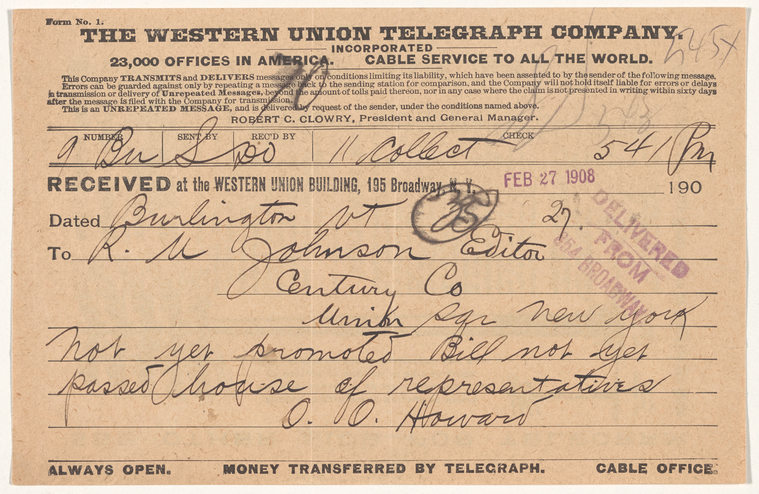 Form No. 1.
THE WESTERN UNION TELEGRAPH COMPANY.
INCORPORATED
23,000 OFFICES IN AMERICA. CABLE SERVICE TO ALL THE WORLD.
This Company TRANSMITS and DELIVERS messages only on conditions limiting its liability, which have been assented to by the sender of the following message.
Errors can be guarded against only by repeating a message back to the sending station for comparison, and the Company will not hold itself liable for errors or delays
in transmission or delivery of Unrepeated Messages, beyond the amount of tolls paid thereon, nor in any case where the claim is not presented in writing within sixty days
after the message is filed with the Company for transmission.
This is an UNREPEATED MESSAGE, and is delivered by request of the sender, under the conditions named above.
ROBERT C. CLOWRY, President and General Manager.
NUMBER SENT BY REC'D BY CHECK
9 Bu S 11 Collect 541 Pm
RECEIVED at the WESTERN UNION BUILDING, 195 Broadway, N. Y. FEB 27 1908 190
Dated Burlington Vt 27.
75
To R. U Johnson Editor
DELIVERED
FROM
864 BROADWAY
Century Co
Union Sqr New York
Not yet promoted Bill not yet
passed house of representatives
O. O. Howard
ALWAYS OPEN. MONEY TRANSFERRED BY TELEGRAPH. CABLE OFFICE.